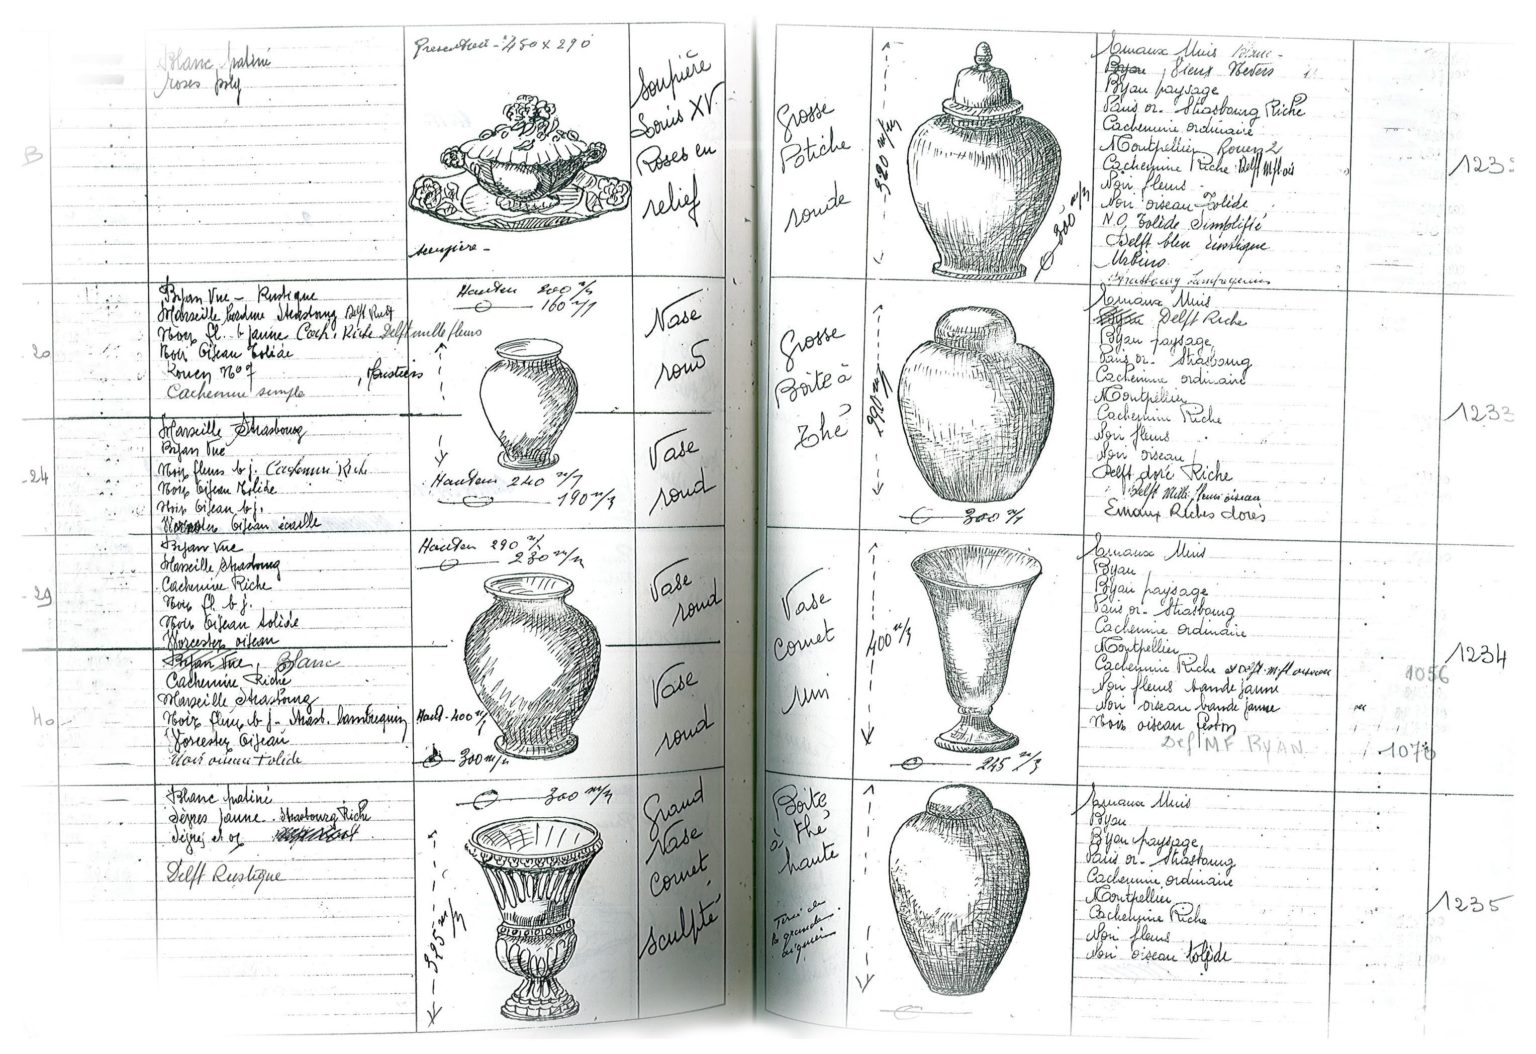 Blanc patiné
roses poly
Présentoir - 450 x 290
soupière -
Soupière
Louis XV
Roses en
relief
B
Byan Vue - Rustique
Marseille Strasbourg Delft Rust
Noir fl. b jaune Cach. Riche Delft mille fleurs
Noir Oiseau Tolède
Rouen No 7, Moustiers
Cachemire simple
Hauteur 200 m/m
160 m/m
Vase
rond
20
Marseille Strasbourg
Byan Vue
Noir fleurs b j. Cachemire Riche
Noir Oiseau Tolède
Noir Oiseau b j.
Worcester Oiseau écaille
Hauteur 240 m/m
190 m/m
Vase
rond
24
Byan Vue
Marseille Strasbourg
Cachemire Riche
Noir fl. b j.
Noir Oiseau Tolède
Worcester oiseau
Hauteur 290 m/m
230 m/m
Vase
rond
29
Byan Vue, Blanc
Cachemire Riche
Marseille Strasbourg
Noir fleurs b j - Strasb. Lambrequin
Worcester Oiseau
Noir oiseau Tolède
Haut - 400 m/m
300 m/m
Vase
rond
40
Blanc patiné
Sèvres jaune - Strasbourg Riche
Sèvres et or
Delft Rustique
300 m/m
395 m/m
Grand
Vase
Cornet
sculpté
Grosse
Potiche
ronde
520 m/m
300 m/m
Emaux Unis Blanc -
Byan, Vieux Nevers
Byan paysage
Paris or - Strasbourg Riche
Cachemire ordinaire
Montpellier Rouen 2
Cachemire Riche Delft M fl ois
Noir fleurs
Noir oiseau Tolède
N.O. Tolède Simplifié
Delft bleu rustique
Urbino
Strasbourg Lambrequins
1232
Grosse
Boite à
Thé
290 m/m
300 m/m
Emaux Unis
Byan Delft Riche
Byan paysage
Paris or - Strasbourg
Cachemire ordinaire
Montpellier
Cachemire Riche
Noir fleurs
Noir oiseau
Delft doré Riche
Delft Mille fleurs oiseau
Emaux Riches dorés
1233
Vase
Cornet
Uni
400 m/m
245 m/m
Emaux Unis
Byan
Byan paysage
Paris or - Strasbourg
Cachemire ordinaire
Montpellier
Cachemire Riche
Noir fleurs bande jaune
Noir oiseau bande jaune
Noir oiseau feston
Delf MF BYAN
1056
1073
1234
Boite
à thé
haute
Emaux Unis
Byan
Byan paysage
Paris or - Strasbourg
Cachemire ordinaire
Montpellier
Cachemire Riche
Noir fleurs
Noir oiseau tolède
1235